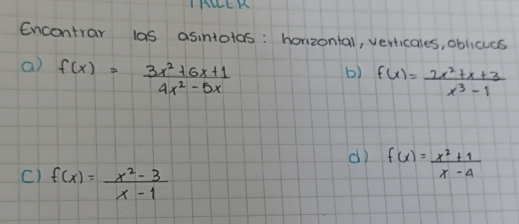 TALLER
Encontrar las asintotas: horizontal, verticales, oblicuas
a) f(x) = 3x²+6x+1 / 4x²-5x
b) f(x) = 2x²+x+3 / x³-1
c) f(x) = x²-3 / x-1
d) f(x) = x²+1 / x-4